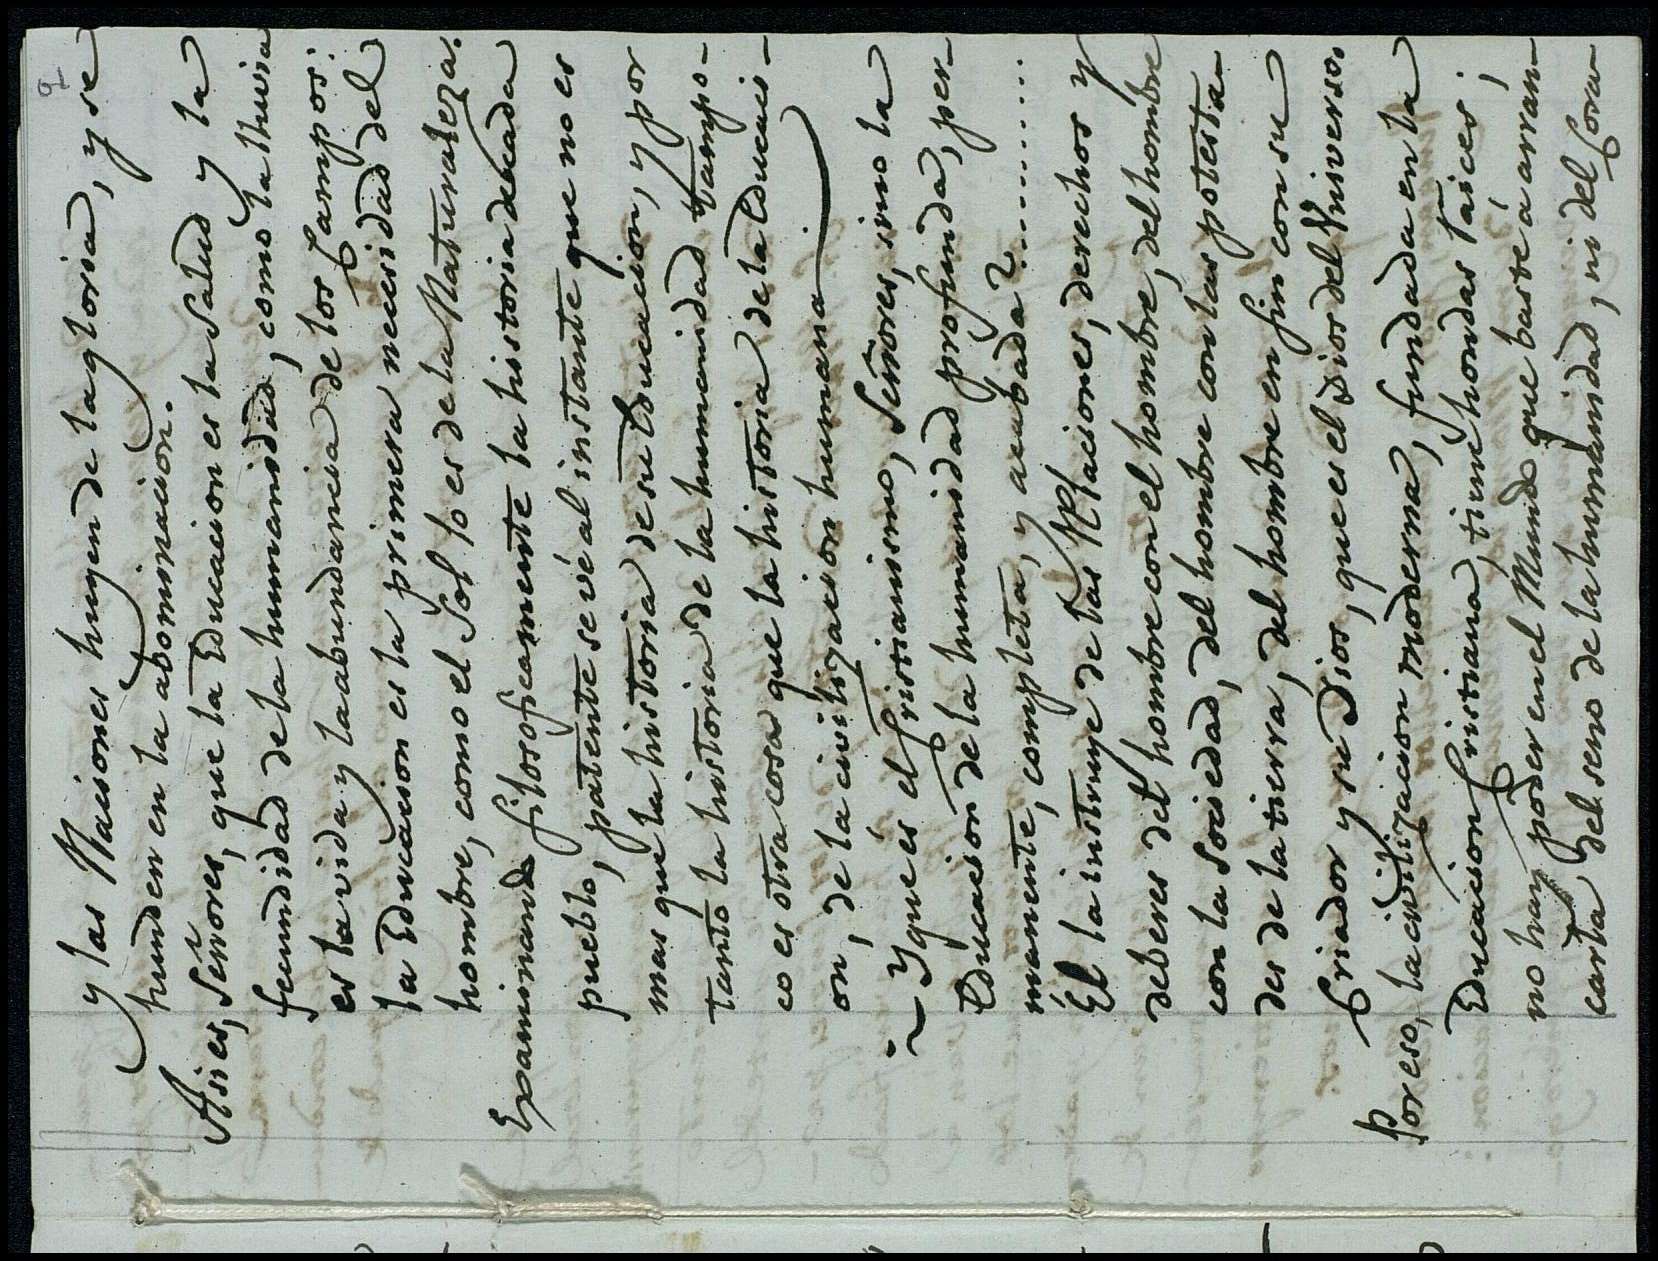 9
y las Naciones huyen de la gloria, y se
hunden en la abominacion.
Asi es, Señores, que la Educacion es la salud y la
fecundidad de la humanidad, como la lluvia
es la vida y la abundancia de los Campos:
la Educacion es la primera necesidad del
hombre, como el Sol lo es de la Naturaleza.
Examinando filosoficamente la historia de cada
pueblo, patente se vé al instante que no es
mas que la historia de su Educacion, y por
tanto la historia de la humanidad tampo-
co es otra cosa que la historia de la Educaci-
on, de la civilizacion humana.
¿Y que és el Cristianismo, Señores, sino la
Educacion de la humanidad profunda, per-
manente, completa, y acabada?.........
Él la instruye de las Relaciones, derechos y
deberes del hombre con el hombre, del hombre
con la Sociedad, del hombre con las potesta-
des de la tierra, del hombre en fin con su
Criador y su Dios, que es el Dios del Universo.
Por eso, la civilizacion moderna, fundada en la
Educacion Cristiana, tiene hondas raices;
no hay poder en el Mundo que baste á arran-
carla del seno de la humanidad, ni del Cora-